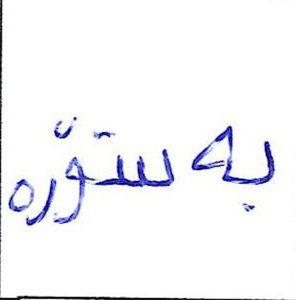 بە ستۆرە